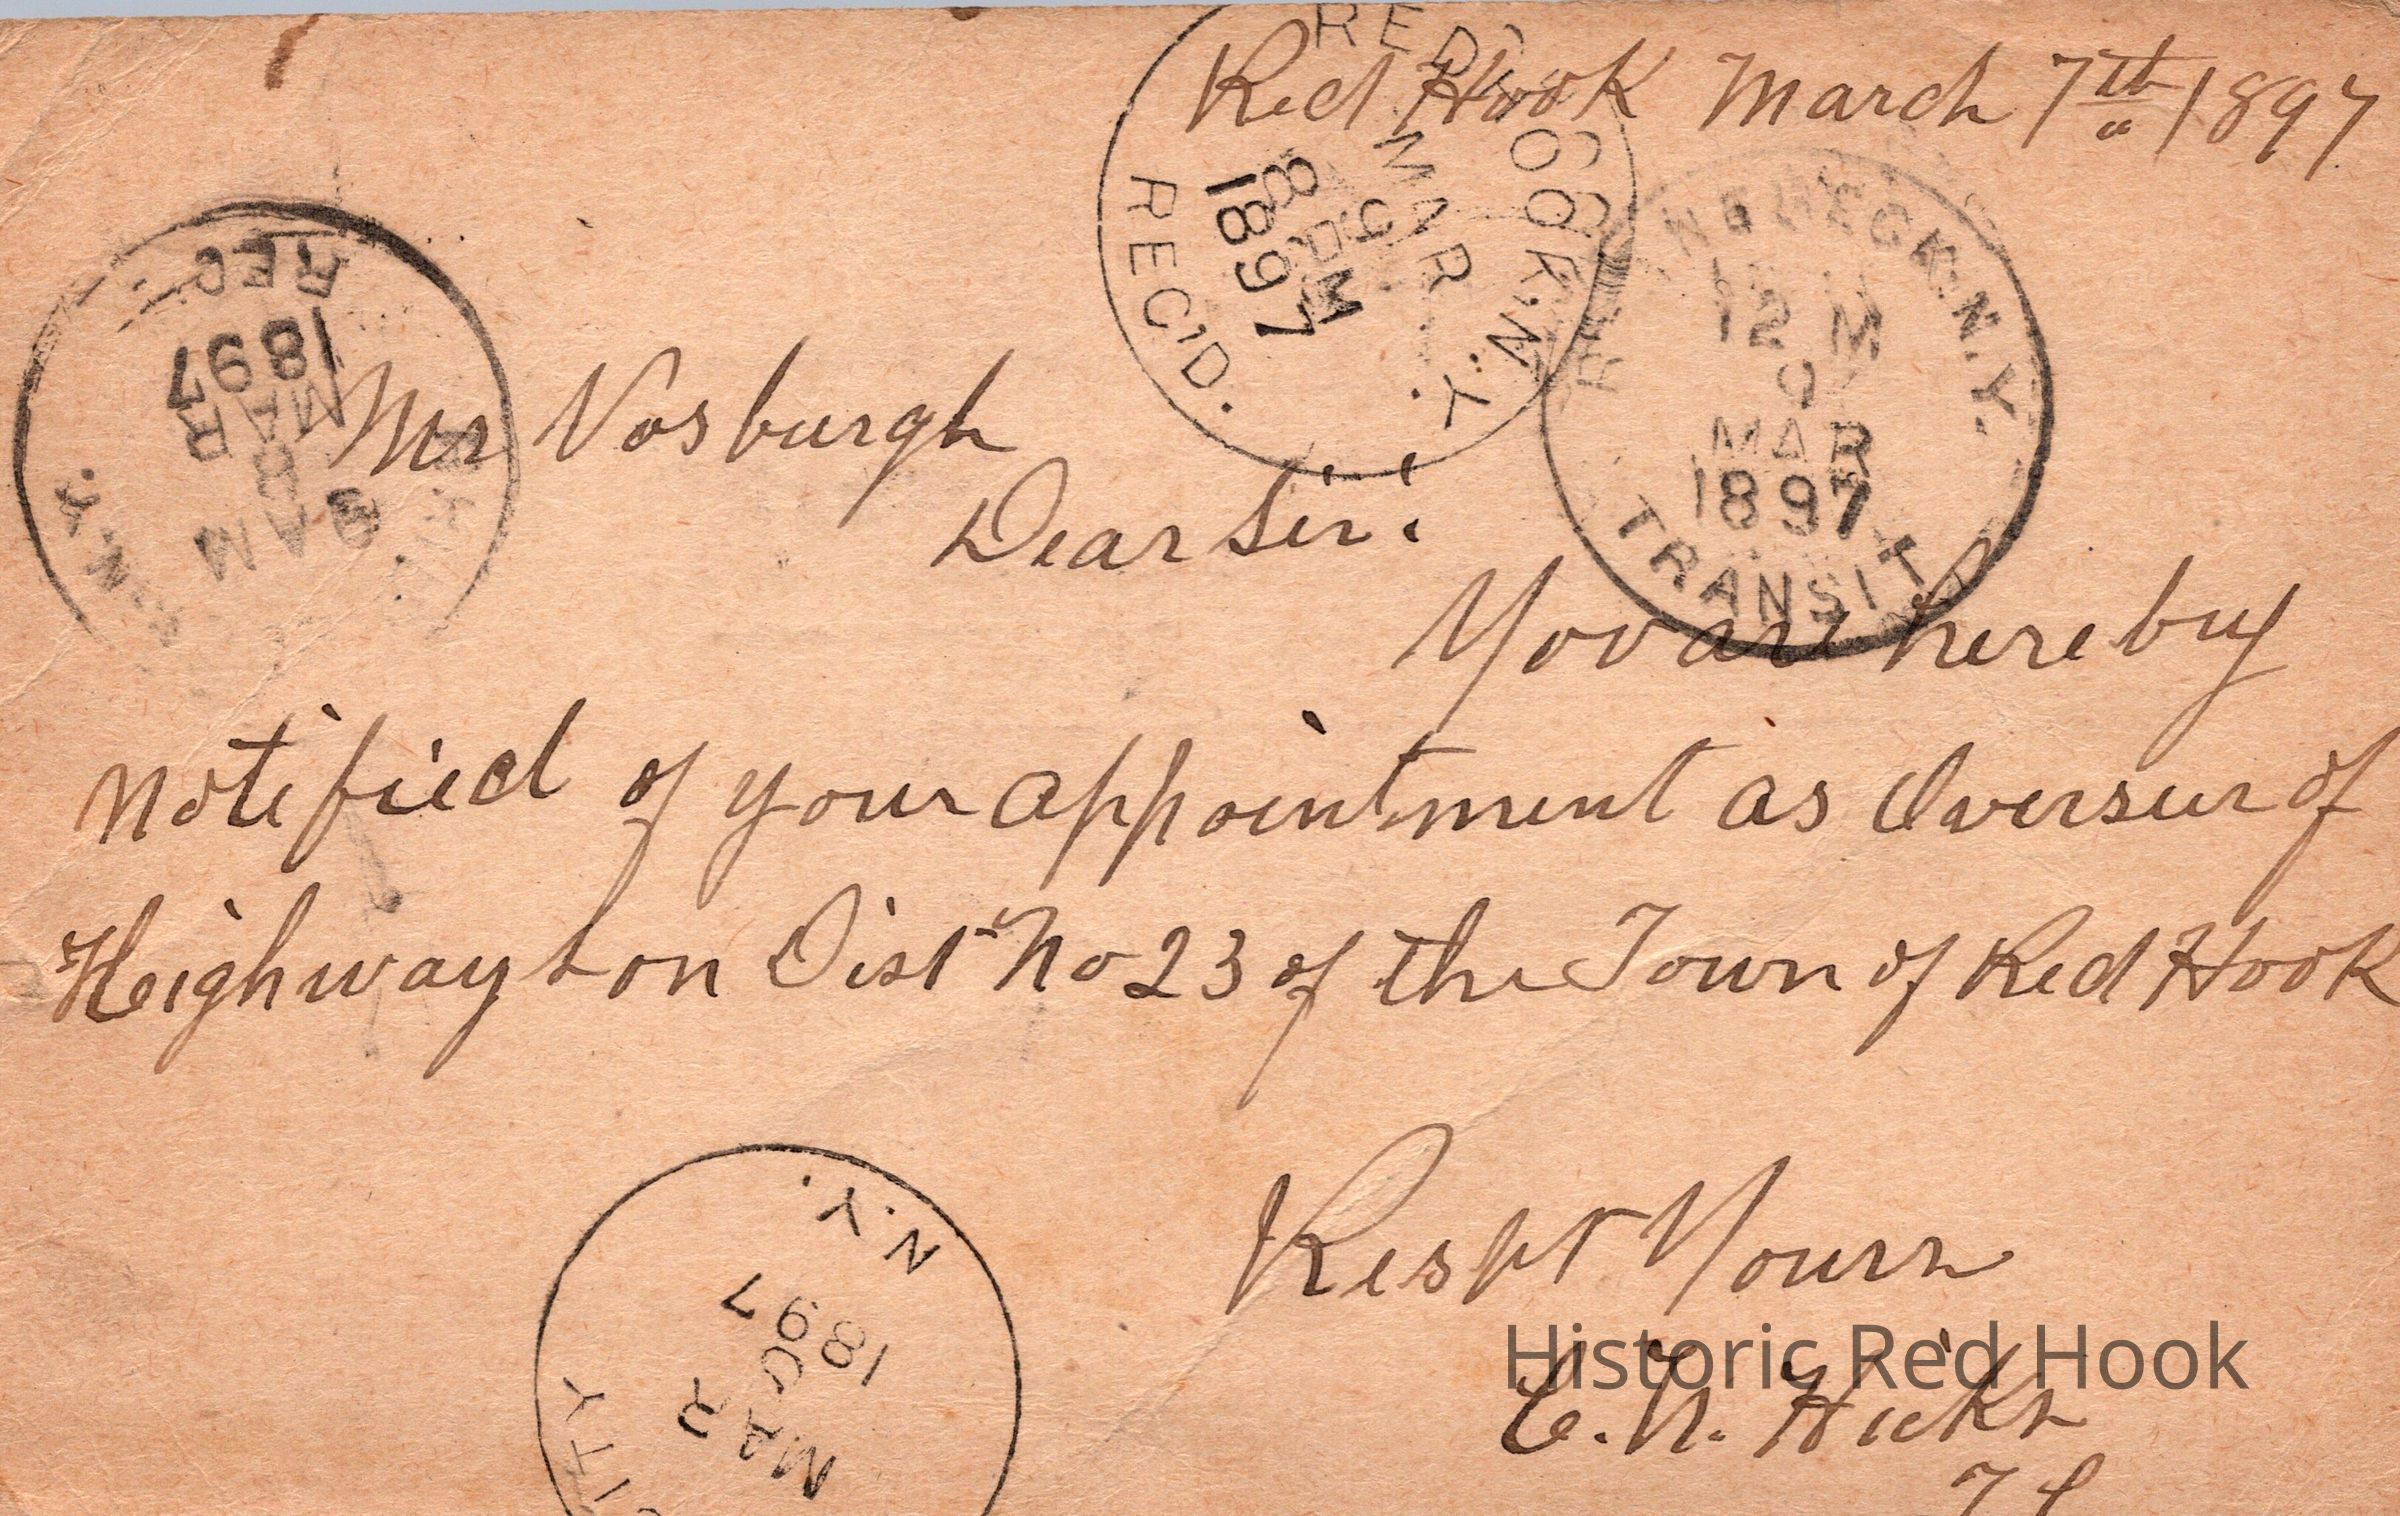 Red Hook March 7th 1897
RED HOOK. N.Y.
MAR
9
8 AM
1897
REC'D.
RHINEBECK. N.Y.
12 M
9
MAR
1897
TRANSIT
REC
1897
MAR
8
9 AM
N.Y.
Mr Vosburgh
Dear Sir:
You are hereby
notified of your appointment as Overseer of
Heighways on Dist No 23 of the Town of Red Hook
Respt Yours
Historic Red Hook
E. N. Hicks
N.Y.
1897
MAR
CITY